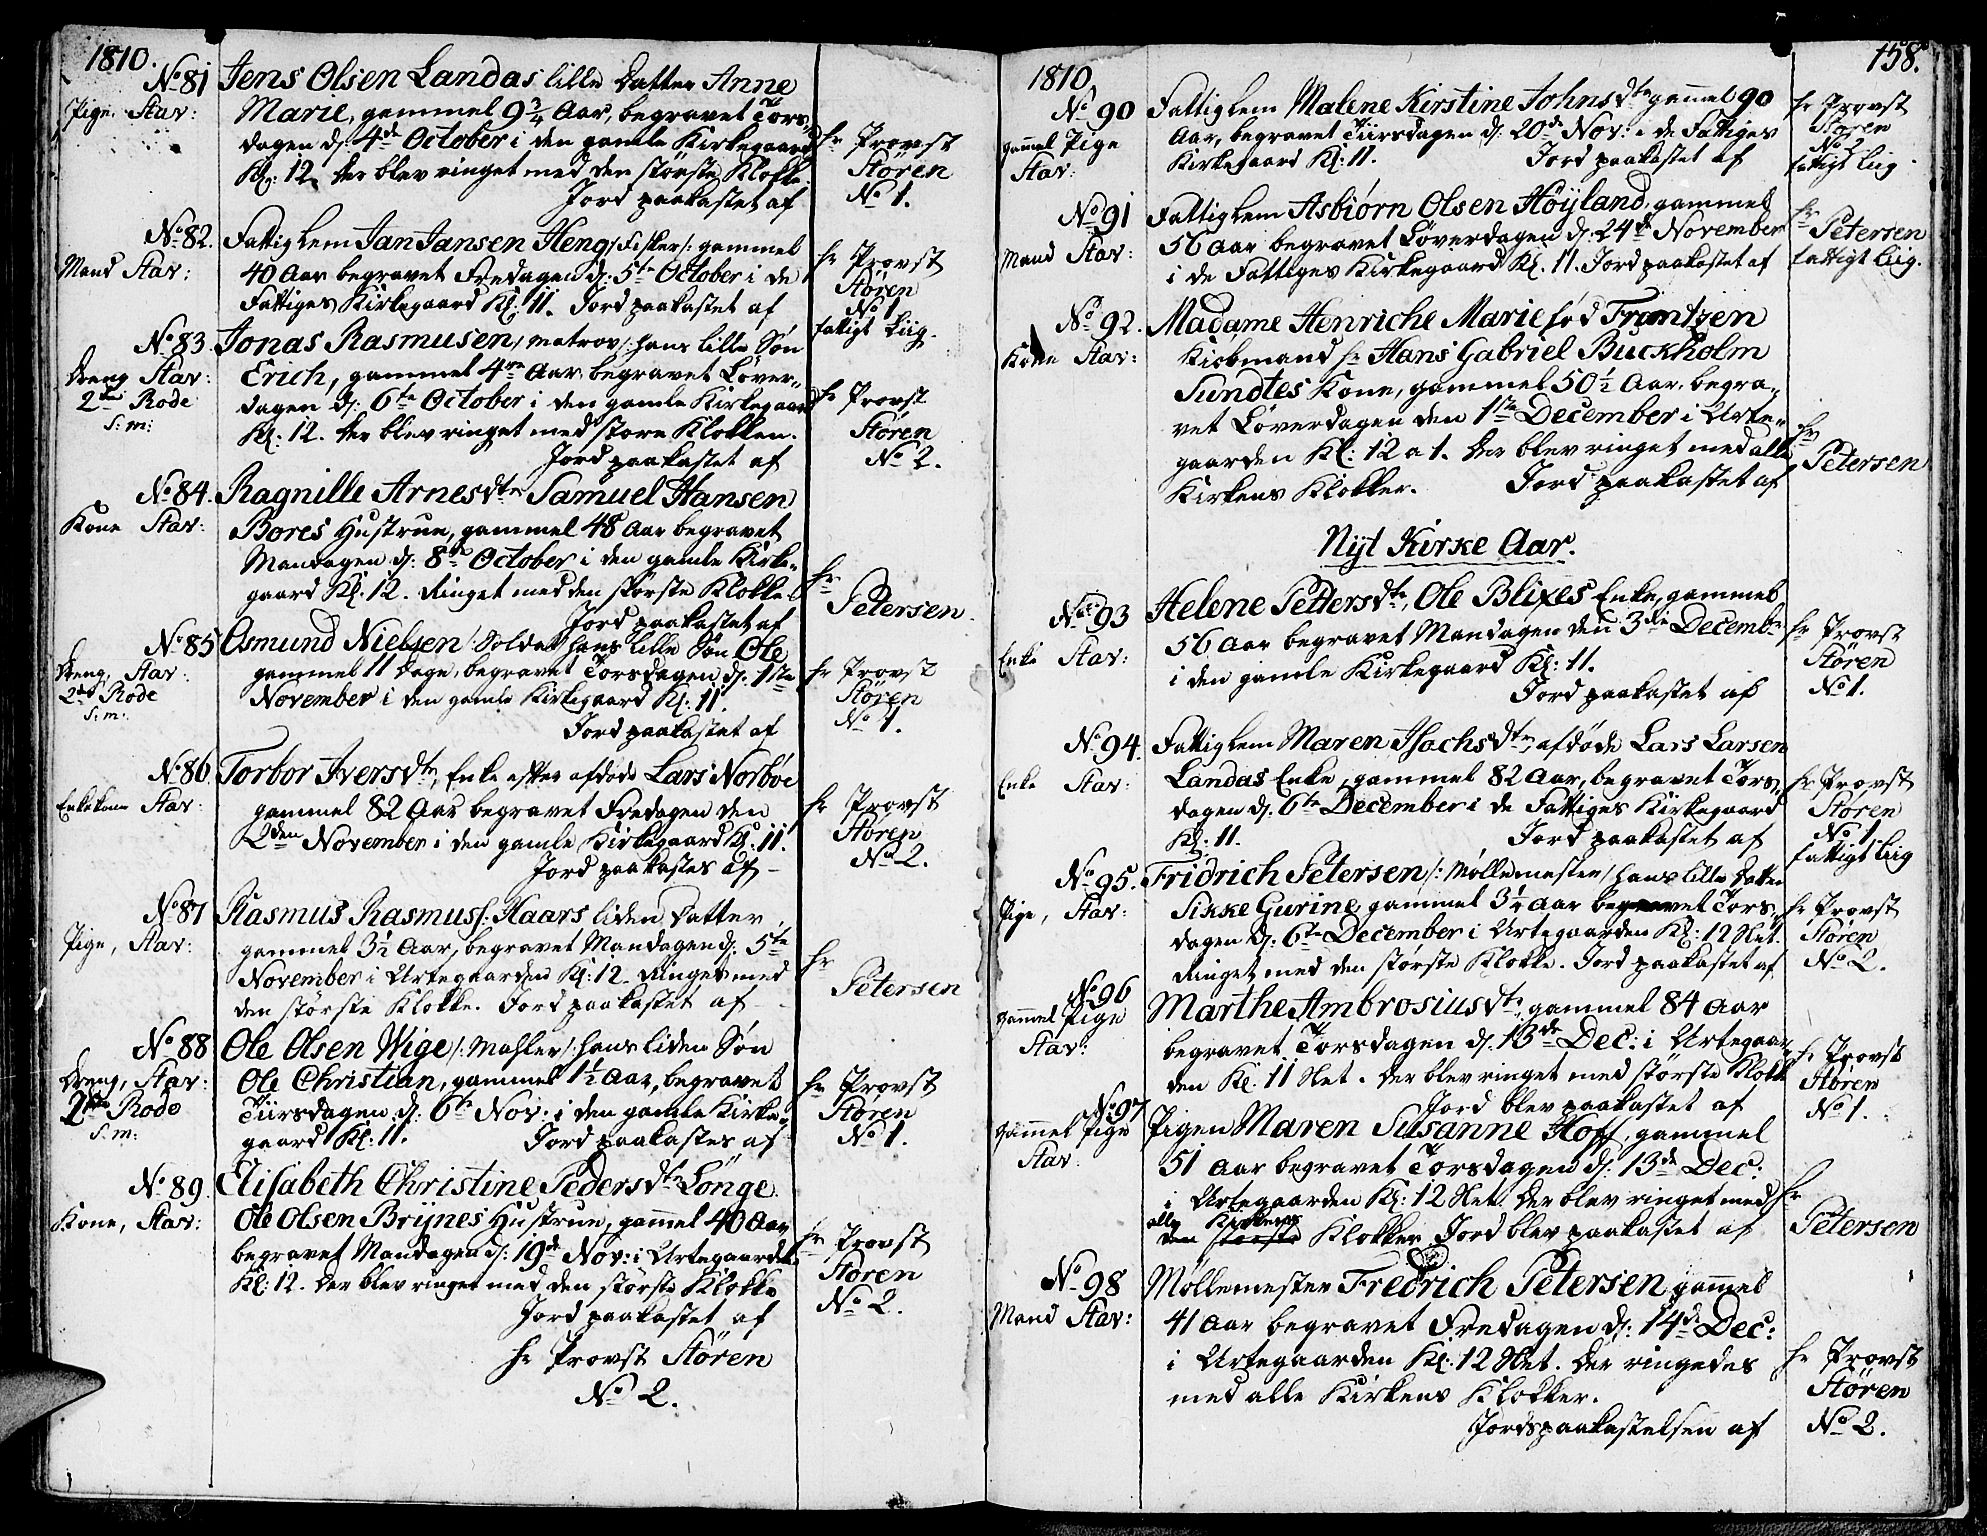 1810.
No 81 Jens Olsen Landas lille Datter Anne
Pige. Stav: Marie, gammel 9 3/4 Aar, begravet Tors-
dagen d: 4de October i den gamle Kirkegaard hr Provst
Kl: 12. Der blev ringet med den største Klokke. Støren
Jord paakastet af No 1.
No 82. Fattiglem Jan Jansen Heng /: Fisker /: gammel
Mand Stav: 40 Aar begravet Fredagen d: 5te October i de hr Provst
Fattiges Kirkegaard Kl: 11. Jord paakastet af Støren
No 1
fattigt Liig.
No 83 Jonas Rasmusen /: Matros /: hans lille Søn
Dreng Stav: Erich, gammel 4re Aar begravet Løver-
2den Rode dagen d: 6te October i den gamle Kirkegaard hr Provst
S: m: Kl: 12. Der blev ringet med store Klokken. Støren
Jord paakastet af No 2.
No 84. Ragnille Arnesdtr Samuel Hansen
Kone Stav: Bores Hustrue, gammel 48 Aar begravet
Mandagen d: 8de October i den gamle Kirke-
gaard Kl: 12. Ringet med den største Klokke hr
Jord paakastet af Petersen
No 85 Osmund Nielsen /: Soldat hans lille Søn Ole
Dreng, Stav: gammel 11 Dage, begravet Torsdagen d: 1ste hr Provst
2den Rode November i den gamle Kirkegaard Kl: 11. Støren
S: m: Jord paakastet af No 1.
No 86 Torbor Iversdtr, Enke efter afdøde Lars Norbøe
Enkekone Stav: gammel 82 Aar begravet Fredagen den hr Provst
2den November i den gamle Kirkegaard Kl: 11. Støren
Jord paakastes af - No 2.
No 87 Rasmus Rasmuss: Haars liden Datter
Pige, Stav: gammel 3 1/2 Aar, begravet Mandagen d: 5te hr
November i Urtegaarden Kl: 12. Ringet med Petersen
den største Klokke. Jord paakastet af -
No 88 Ole Olsen Wige /: Mahler /: hans liden Søn
Dreng, Stav: Ole Christian, gammel 1 1/2 Aar, begravet hr Provst
2den Rode Tiirsdagen d: 6te Nov: i den gamle Kirke- Støren
S: m: gaard Kl: 11. Jord paakastes af No 1.
No 89. Elisabeth Christine Pedersdtr Lønge
Kone, Stav: Ole Olsen Brijnes Hustrue, gamel 40 Aar
begravet Mandagen d: 19de Nov: i Urtegaarden hr Provst
Kl: 12. Der blev ringet med den største Klokke Støren
Jord paakastet af No 2.
hr Provst Støren
No 2.
158.
1810
No 90 Fattiglem Malene Kirstine Johnsdtr gamel 90 hr Provst
gammel Pige Aar, begravet Tiirsdagen d: 20de Nov: i de Fattiges Støren
Stav: Kirkegaard Kl: 11. Jord paakastet af No 2
fattigt Liig
No 91 Fattiglem Asbiørn Olsen Høijland, gammel hr
Mand Stav: 56 Aar begravet Løverdagen d: 24de November Petersen
i de Fattiges Kirkegaard Kl: 11. Jord paakastet af fattigt Liig.
No 92. Madame Henriche Marie fød Frantzen
Kone Stav: Kiøbmand hr Hans Gabriel Buckholm
Sundtes Kone, gammel 50 1/2 Aar, begra-
vet Løverdagen den 1ste December i Urte- hr
gaarden Kl: 12 a 1. Der blev ringet med alle Petersen
Kirkens Klokker. Jord paakastet af
Nyt Kirke Aar.
No 93 Helene Pettersdtr, Ole Blixes Enke, gammel
Enke Stav: 56 Aar begravet Mandagen den 3die Decembr hr Provst
i den gamle Kirkegaard Kl: 11. Støren
Jord paakastet af No 1.
No 94. Fattiglem Maren Isachsdtr, afdøde Lars Larsen
Enke Stav: Landas Enke, gammel 82 Aar, begravet Tors- hr Provst
dagen d: 6te December i de Fattiges Kirkegaard Støren
Kl: 11. Jord paakastet af No 1
fattigt Liig
No 95. Fridrich Petersen /: Møllemester / hans lille Datter
Pige, Stav: Sikke Gurine, gammel 3 1/4 Aar begravet Tors- hr Provst
dagen d: 6te December i Urtegaarden Kl: 12 Slet. Støren
Ringet med den største Klokke. Jord paakastet af No 2.
No 96 Marthe Ambrosiusdtr, gammel 84 Aar
gammel Pige begravet Torsdagen d: 13de Dec: i Urtegaar- hr Provst
Stav: den Kl: 11 Slet. Der blev ringet med største Klokke Støren
Jord blev paakastet af No 1.
No 97 Pigen Maren Susanne Hoff, gammel
gammel Pige 51 Aar begravet Torsdagen d: 13de Dec:
Stav: i Urtegaarden Kl: 12 Slet. Der blev ringet med hr
alle Kirkens
den største Klokker Jord blev paakastet af Petersen
No 98 Møllemester Fredrich Petersen gamel
Mand Stav: 41 Aar begravet Fredagen d: 14de Dec:
i Urtegaarden Kl: 12 Slet. Der ringedes hr Provst
med alle Kirkens Klokker. Støren
Jordspaakastelsen af No 2.